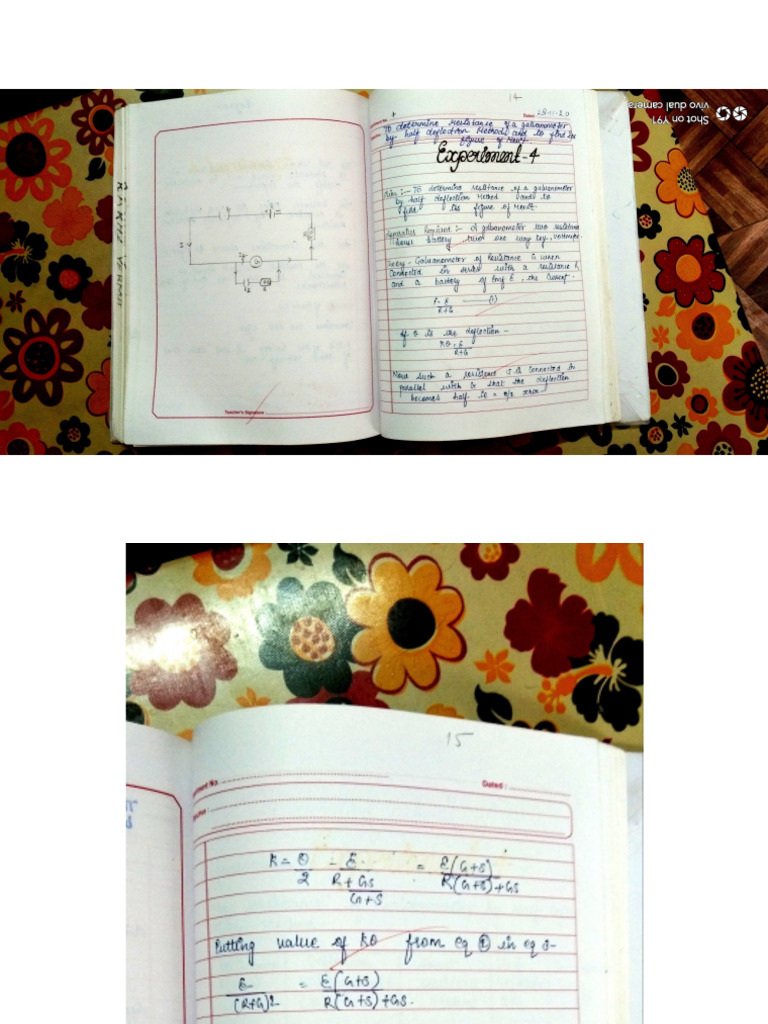 14
Shot on Y91
vivo dual camera
Dated: 28-11-20
To determine resistance of a galvanometer
by half deflection Methods and to find its
figure of Merit
Experiment-4
Aim :- To determine resistance of a galvanometer
by half deflection Method and to
find its figure of Merit.
Apparatus Required :- A galvanometer two resistance
boxes battery, two one way key, voltmeter.
Theory - Galvanometer of Resistance G when
connected in series with a resistance R
and a battery of Emf E, the current.
I = E (1)
R+G
If θ is the deflection-
Kθ = E
R+G
Now such a resistance S is connected in
parallel with G that the deflection
becomes half to = θ/2 then-
Teacher's Signature
15
Dated :
K= θ = E = E(G+S)
2 R+GS R(G+S)+GS
G+S
Putting value of Kθ from eq ① in eq 2-
E = E(G+S)
(R+G)2 R(G+S)+GS.